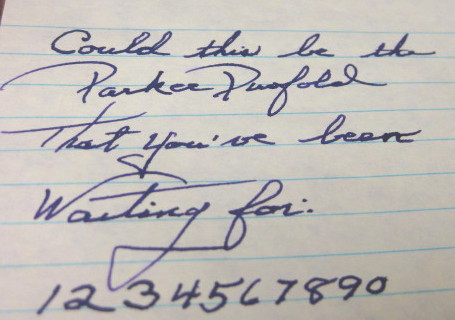 Could this be the
Parker Duofold
That you've been
Waiting for.
1234567890